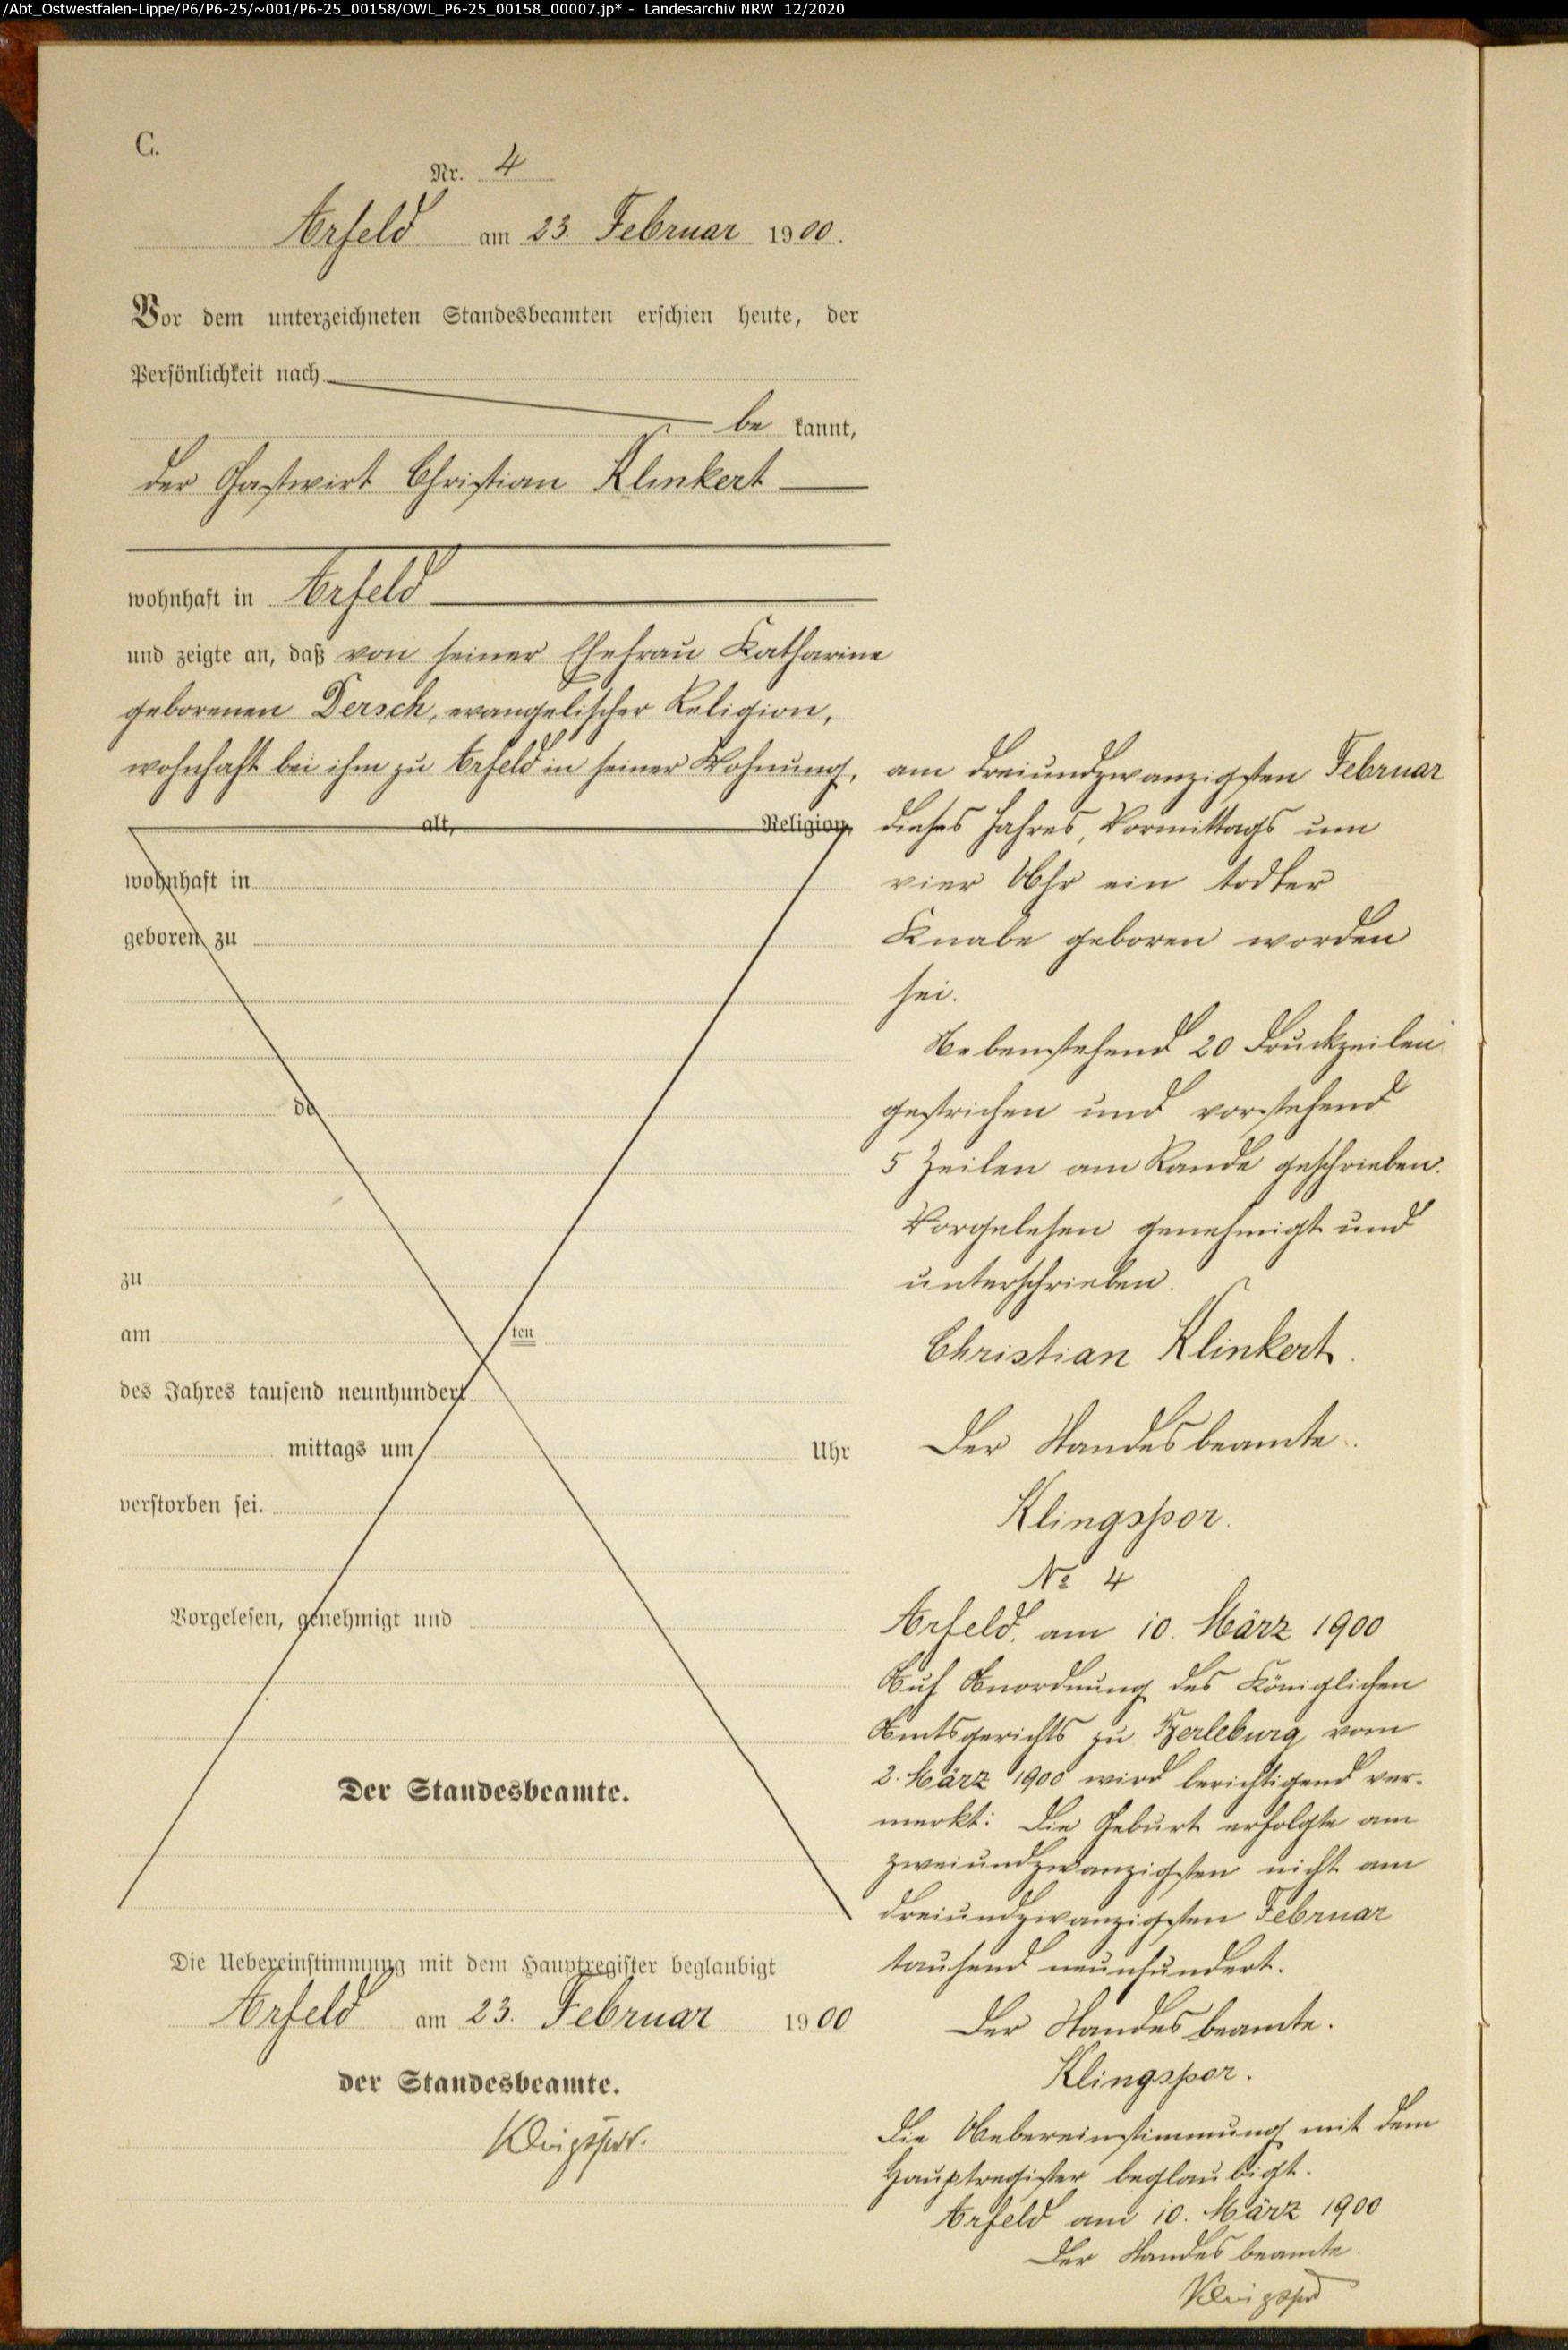 /Abt_Ostwestfalen-Lippe/P6/P6-25/~001/P6-25_00158/OWL_P6-25_00158_00007.jp* - Landesarchiv NRW 12/2020
C.
Nr. 4
Arfeld am 23. Februar 1900.
Vor dem unterzeichneten Standesbeamten erschien heute, der
Persönlichkeit nach
be kannt,
der Gastwirt Christian Klinkert
wohnhaft in Arfeld
und zeigte an, daß von seiner Ehefrau Katharine
geborenen Dersch, evangelischer Religion,
wohnhaft bei ihm zu Arfeld in seiner Wohnung,
alt, Religion,
wohnhaft in
geboren zu
de
zu
am ten
des Jahres tausend neunhundert
mittags um Uhr
verstorben sei.
Vorgelesen, genehmigt und
Der Standesbeamte.
Die Uebereinstimmung mit dem Hauptregister beglaubigt
Arfeld am 23. Februar 1900
der Standesbeamte.
Klingspor.
am dreiundzwanzigsten Februar
dieses Jahres, Vormittags um
vier Uhr ein todter
Knabe geboren worden
sei.
Nebenstehend 20 Druckzeilen
gestrichen und vorstehend
5 Zeilen am Rande geschrieben.
Vorgelesen genehmigt und
unterschrieben.
Christian Klinkert.
Der Standesbeamte.
Klingspor.
No 4
Arfeld, am 10. März 1900
Auf Anordnung des Königlichen
Amtsgerichts zu Berleburg vom
2. März 1900 wird berichtigend ver-
merkt: Die Geburt erfolgte am
zweiundzwanzigsten nicht am
dreiundzwanzigsten Februar
tausend neunhundert.
Der Standesbeamte.
Klingspor.
Die Uebereinstimmung mit dem
Hauptregister beglaubigt.
Arfeld am 10. März 1900
Der Standesbeamte.
Klingspor